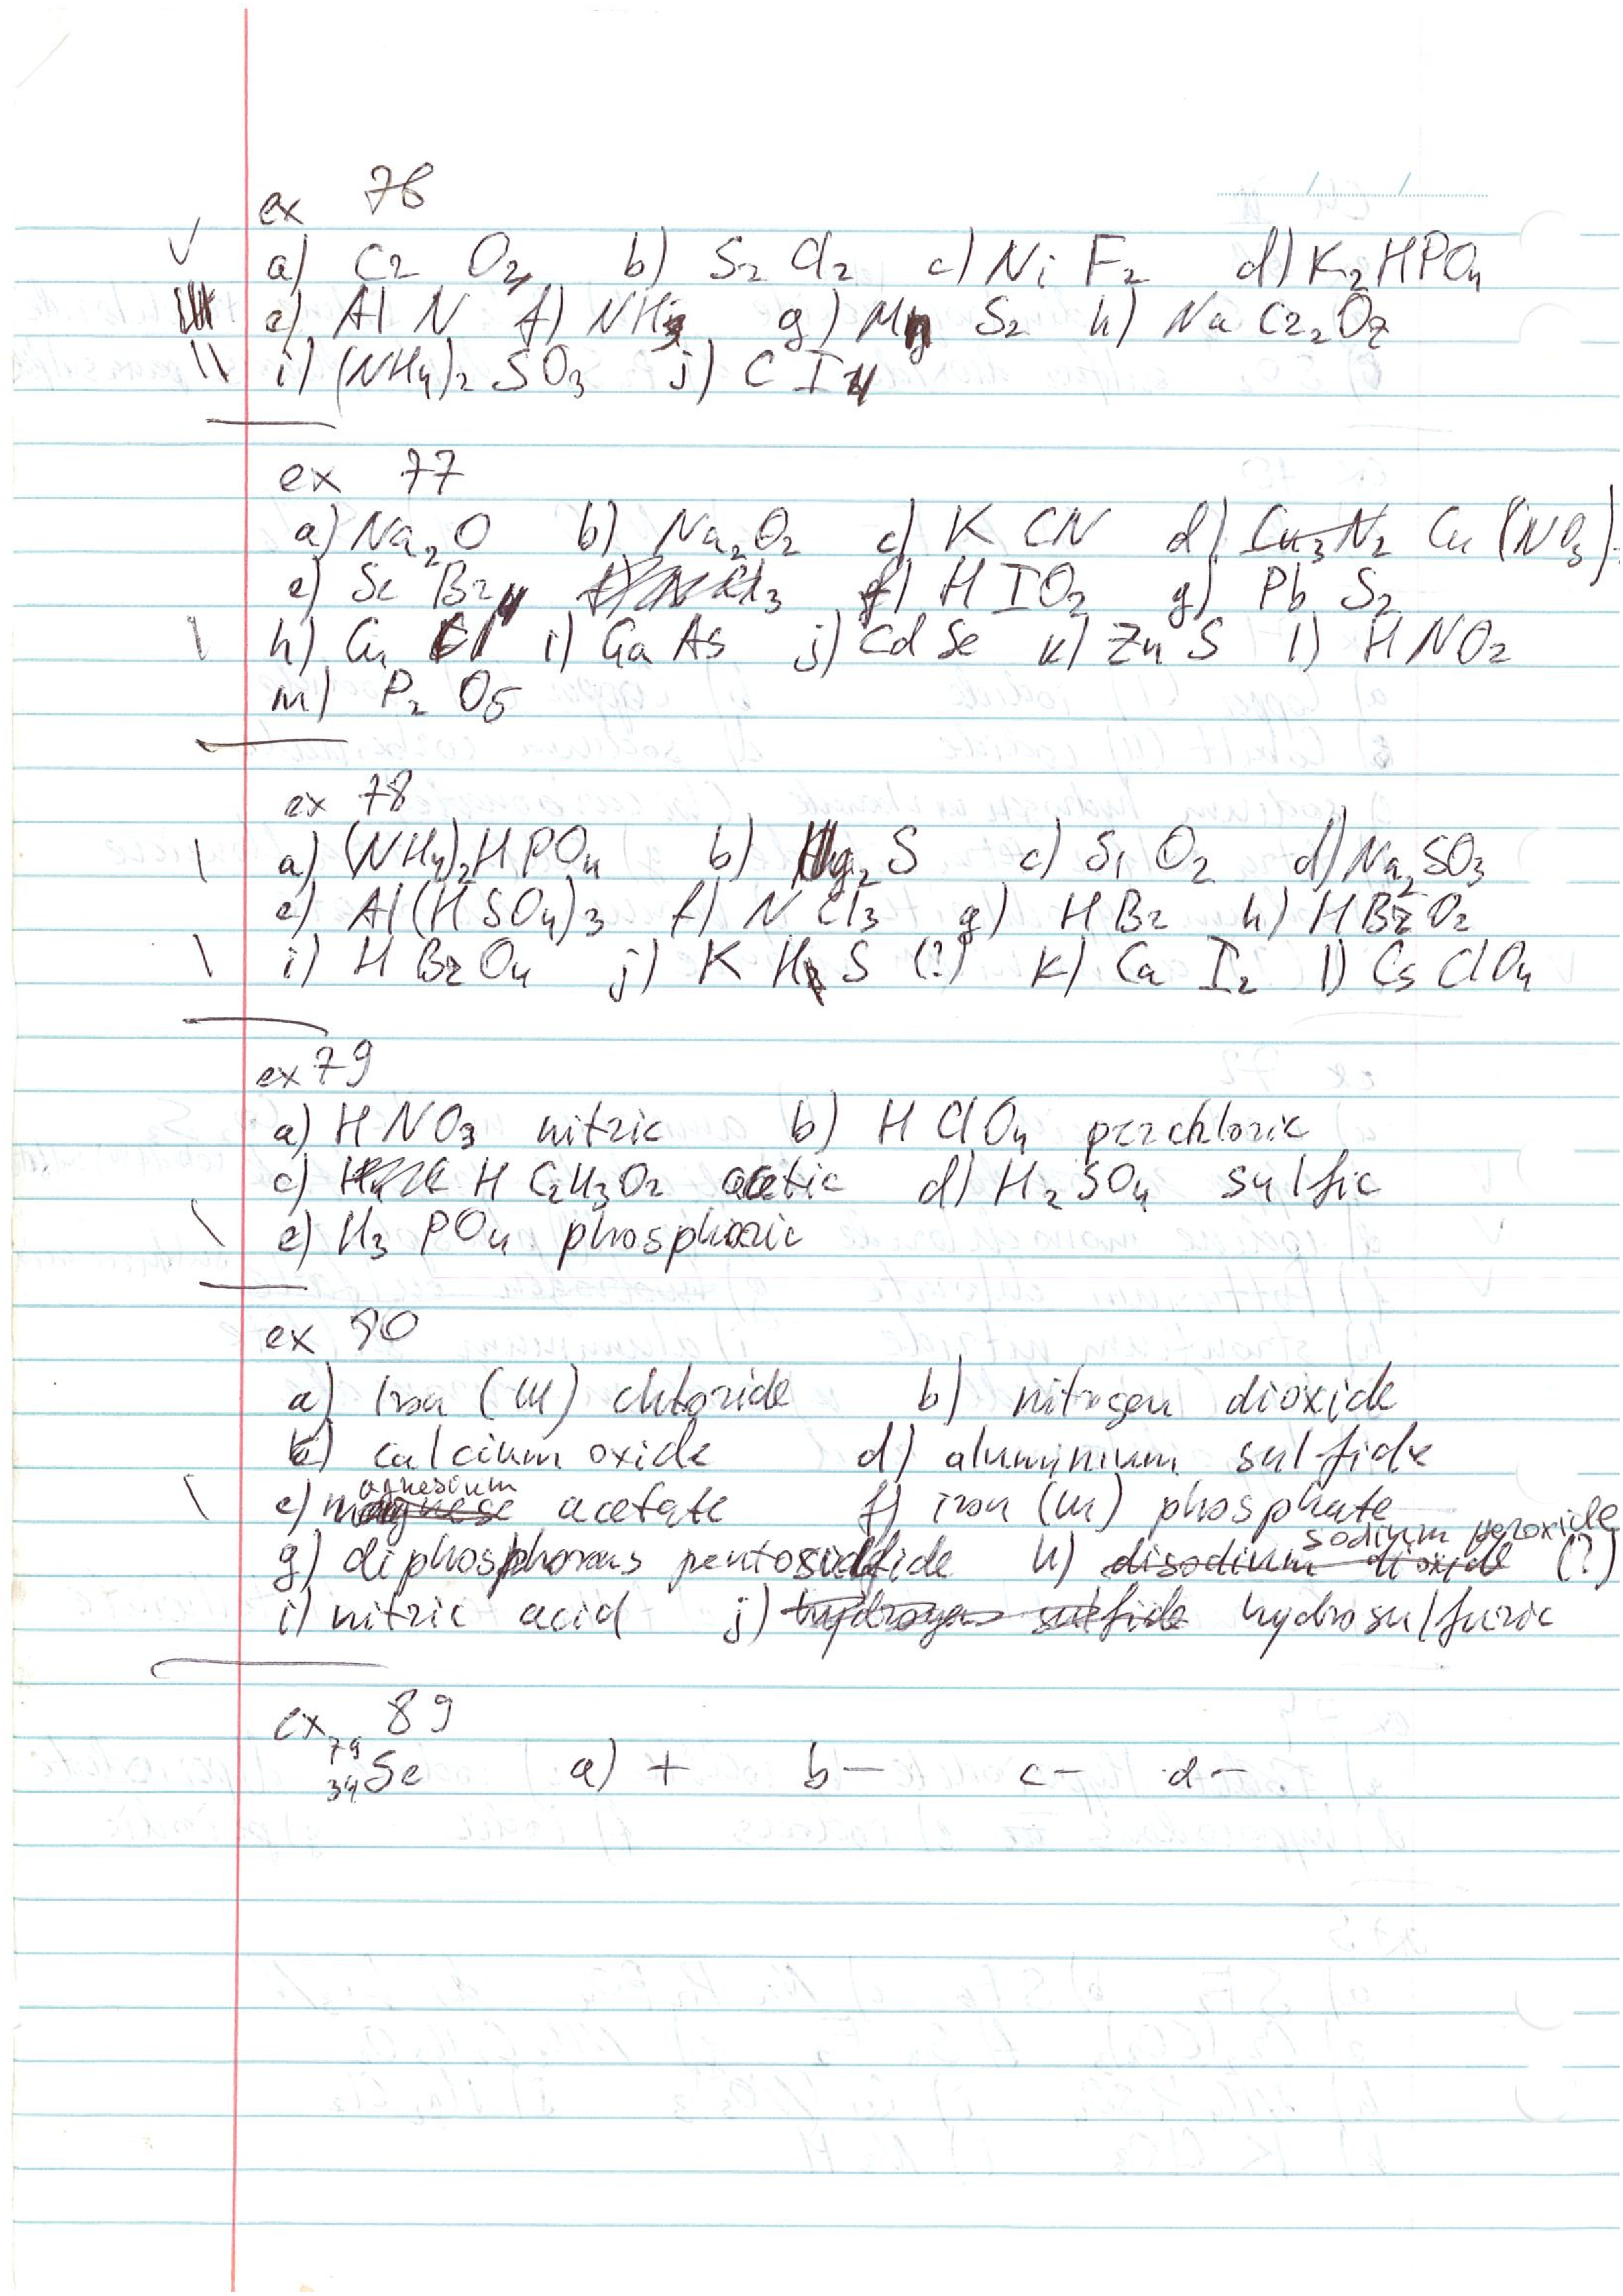 ex 76
a) Cr O2, b) S2 Cl2 c) Ni F2 d) K2HPO4
e) Al N f) NH3 g) Mn S2 h) Na Cr2O7
i) (NH4)2 SO3 j) C I4
ex 77
a) Na2O b) Na2O2 c) K CN d) Cu3N2 Cu (NO3)
e) Se Br4 f) HIO3 g) Pb S2
h) Cu Cl i) Ga As j) Cd Se k) Zn S l) HNO2
m) P2 O5
ex 78
a) (NH4)2HPO4 b) Hg2 S c) Si O2 d) Na2SO3
e) Al(HSO4)3 f) N Cl3 g) HBr h) HBrO2
i) HBrO4 j) K H S (?) k) Ca I2 l) Cs ClO4
ex 79
a) HNO3 nitric b) HClO4 perchloric
c) H C2H3O2 acetic d) H2SO4 sulfic
e) H3 PO4 phosphoric
ex 90
a) Iron (III) chloride b) nitrogen dioxide
calcium oxide d) aluminium sulfide
e) magnesium acetate f) iron (III) phosphate
g) diphosphorus pentosulfide h) disodium dioxide sodium peroxide (?)
i) nitric acid j) hydrogen sulfide hydrosulfuric
ex 89
79 34 Se a) + b - c - d -